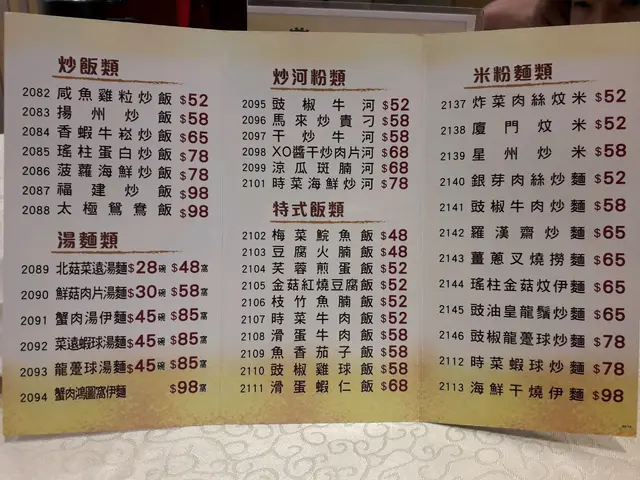 炒飯類
2082 咸魚雞粒炒飯 $52
2083 揚州炒飯 $58
2084 香蝦牛崧炒飯 $65
2085 瑤柱蛋白炒飯 $78
2086 菠蘿海鮮炒飯 $78
2087 福建炒飯 $98
2088 太極鴛鴦飯 $98
湯麵類
2089 北菇菜遠湯麵 $28碗 $48窩
2090 鮮菇肉片湯麵 $30碗 $58窩
2091 蟹肉湯伊麵 $45碗 $85窩
2092 菜遠蝦球湯麵 $45碗 $85窩
2093 龍躉球湯麵 $45碗 $85窩
2094 蟹肉鴻圖窩伊麵 $98窩
炒河粉類
2095 豉椒牛河 $52
2096 馬來炒貴刁 $58
2097 干炒牛河 $58
2098 XO醬干炒肉片河 $68
2099 涼瓜斑腩河 $68
2101 時菜海鮮炒河 $78
特式飯類
2102 梅菜鯇魚飯 $48
2103 豆腐火腩飯 $48
2104 芙蓉煎蛋飯 $52
2105 金菇紅燒豆腐飯 $52
2106 枝竹魚腩飯 $52
2107 時菜牛肉飯 $52
2108 滑蛋牛肉飯 $58
2109 魚香茄子飯 $58
2110 豉椒雞球飯 $58
2111 滑蛋蝦仁飯 $68
米粉麵類
2137 炸菜肉絲炆米 $52
2138 廈門炆米 $52
2139 星州炒米 $58
2140 銀芽肉絲炒麵 $52
2141 豉椒牛肉炒麵 $58
2142 羅漢齋炒麵 $65
2143 薑蔥叉燒撈麵 $65
2144 瑤柱金菇炆伊麵 $65
2145 豉油皇龍鬚炒麵 $65
2146 豉椒龍躉球炒麵 $78
2112 時菜蝦球炒麵 $78
2113 海鮮干燒伊麵 $98